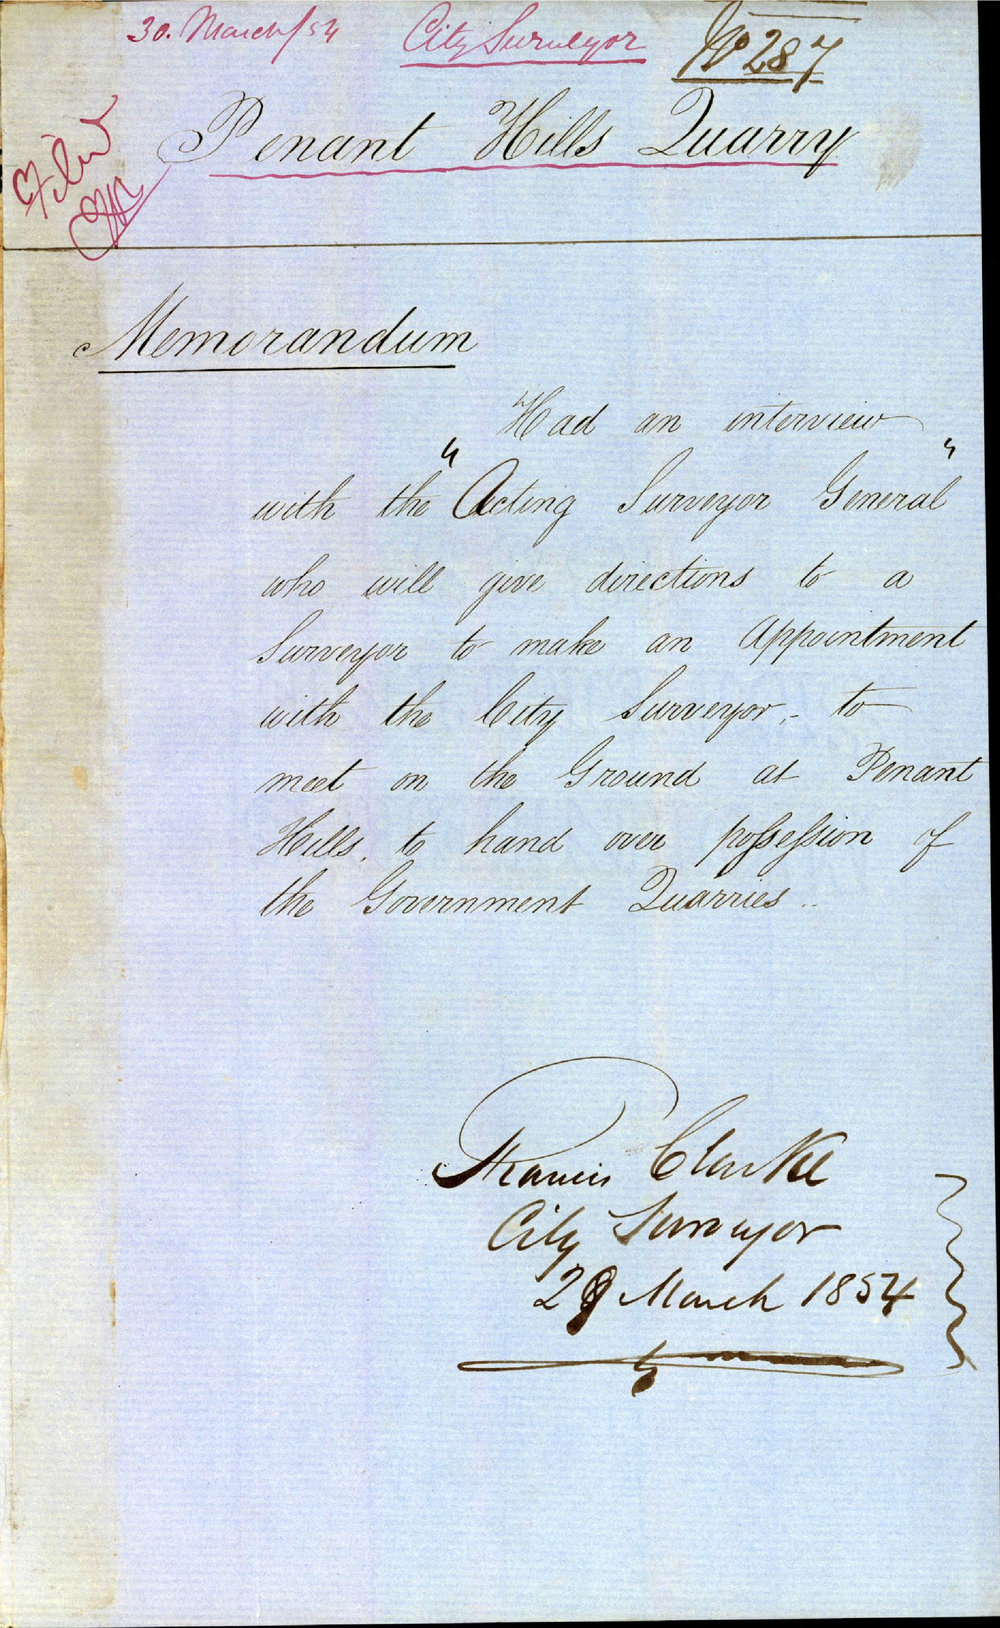 30. March/54 City Surveyor No 287
Penant Hills Quarry
Filed
Memorandum
Had an interview
with the "Acting Surveyor General"
who will give directions to a
Surveyor to make an Appointment
with the City Surveyor, - to
meet on the Ground at Penant
Hills, to hand over possession of
the Government Quarries..
Francis Clarke
City Surveyor
29 March 1854